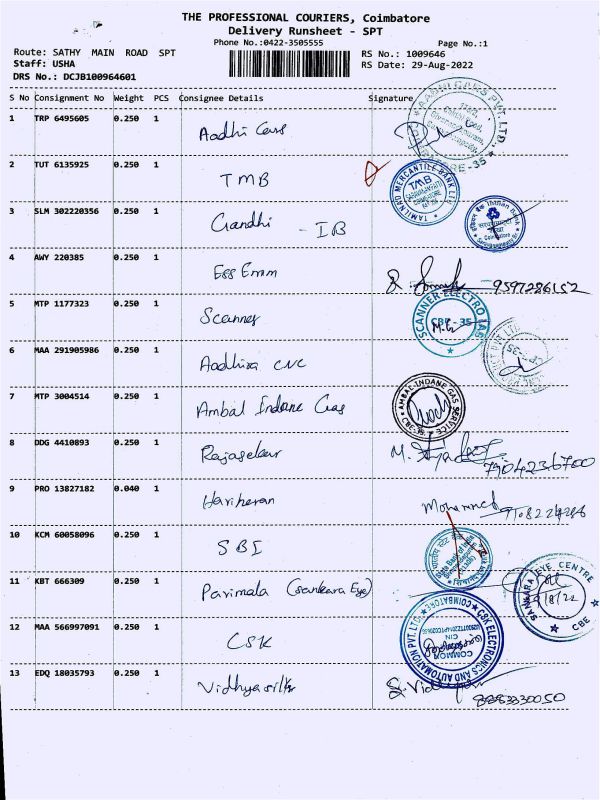 THE PROFESSIONAL COURIERS, Coimbatore
Delivery Runsheet - SPT
Phone No.:0422-3505555
Page No.:1
Route: SATHY MAIN ROAD SPT
RS No.: 1009646
Staff: USHA
RS Date: 29-Aug-2022
DRS No.: DCJB100964601
S No Consignment No Weight PCS Consignee Details Signature
1 TRP 6495605 0.250 1 Aadhi Cars
2 TUT 6135925 0.250 1 TMB
TAMILNAD MERCANTILE BANK LTD
TMB
3 SLM 302220356 0.250 1 Gandhi - IB
Indian Bank
4 AWY 220385 0.250 1 Ess Emm 9597286152
5 MTP 1177323 0.250 1 Scanner
SCANNER ELECTRO GAS
CBE-35
6 MAA 291905986 0.250 1 Aadhira CNC
7 MTP 3004514 0.250 1 Ambal Indane Gas
AMBAL-INDANE GAS SERVICE
8 DDG 4410893 0.250 1 Rajasekar
7904236700
9 PRO 13827182 0.040 1 Hariharan Mohammed
10 KCM 60058096 0.250 1 SBI
11 KBT 666309 0.250 1 Parimala (Sankara Eye)
SANKARA EYE CENTRE
CBE
12 MAA 566997091 0.250 1 CSK
C&K ELECTRONICS AND AUTOMATION PVT. LTD.
COIMBATORE
COMMON
13 EDQ 18035793 0.250 1 Vidhyasilks
8883830050